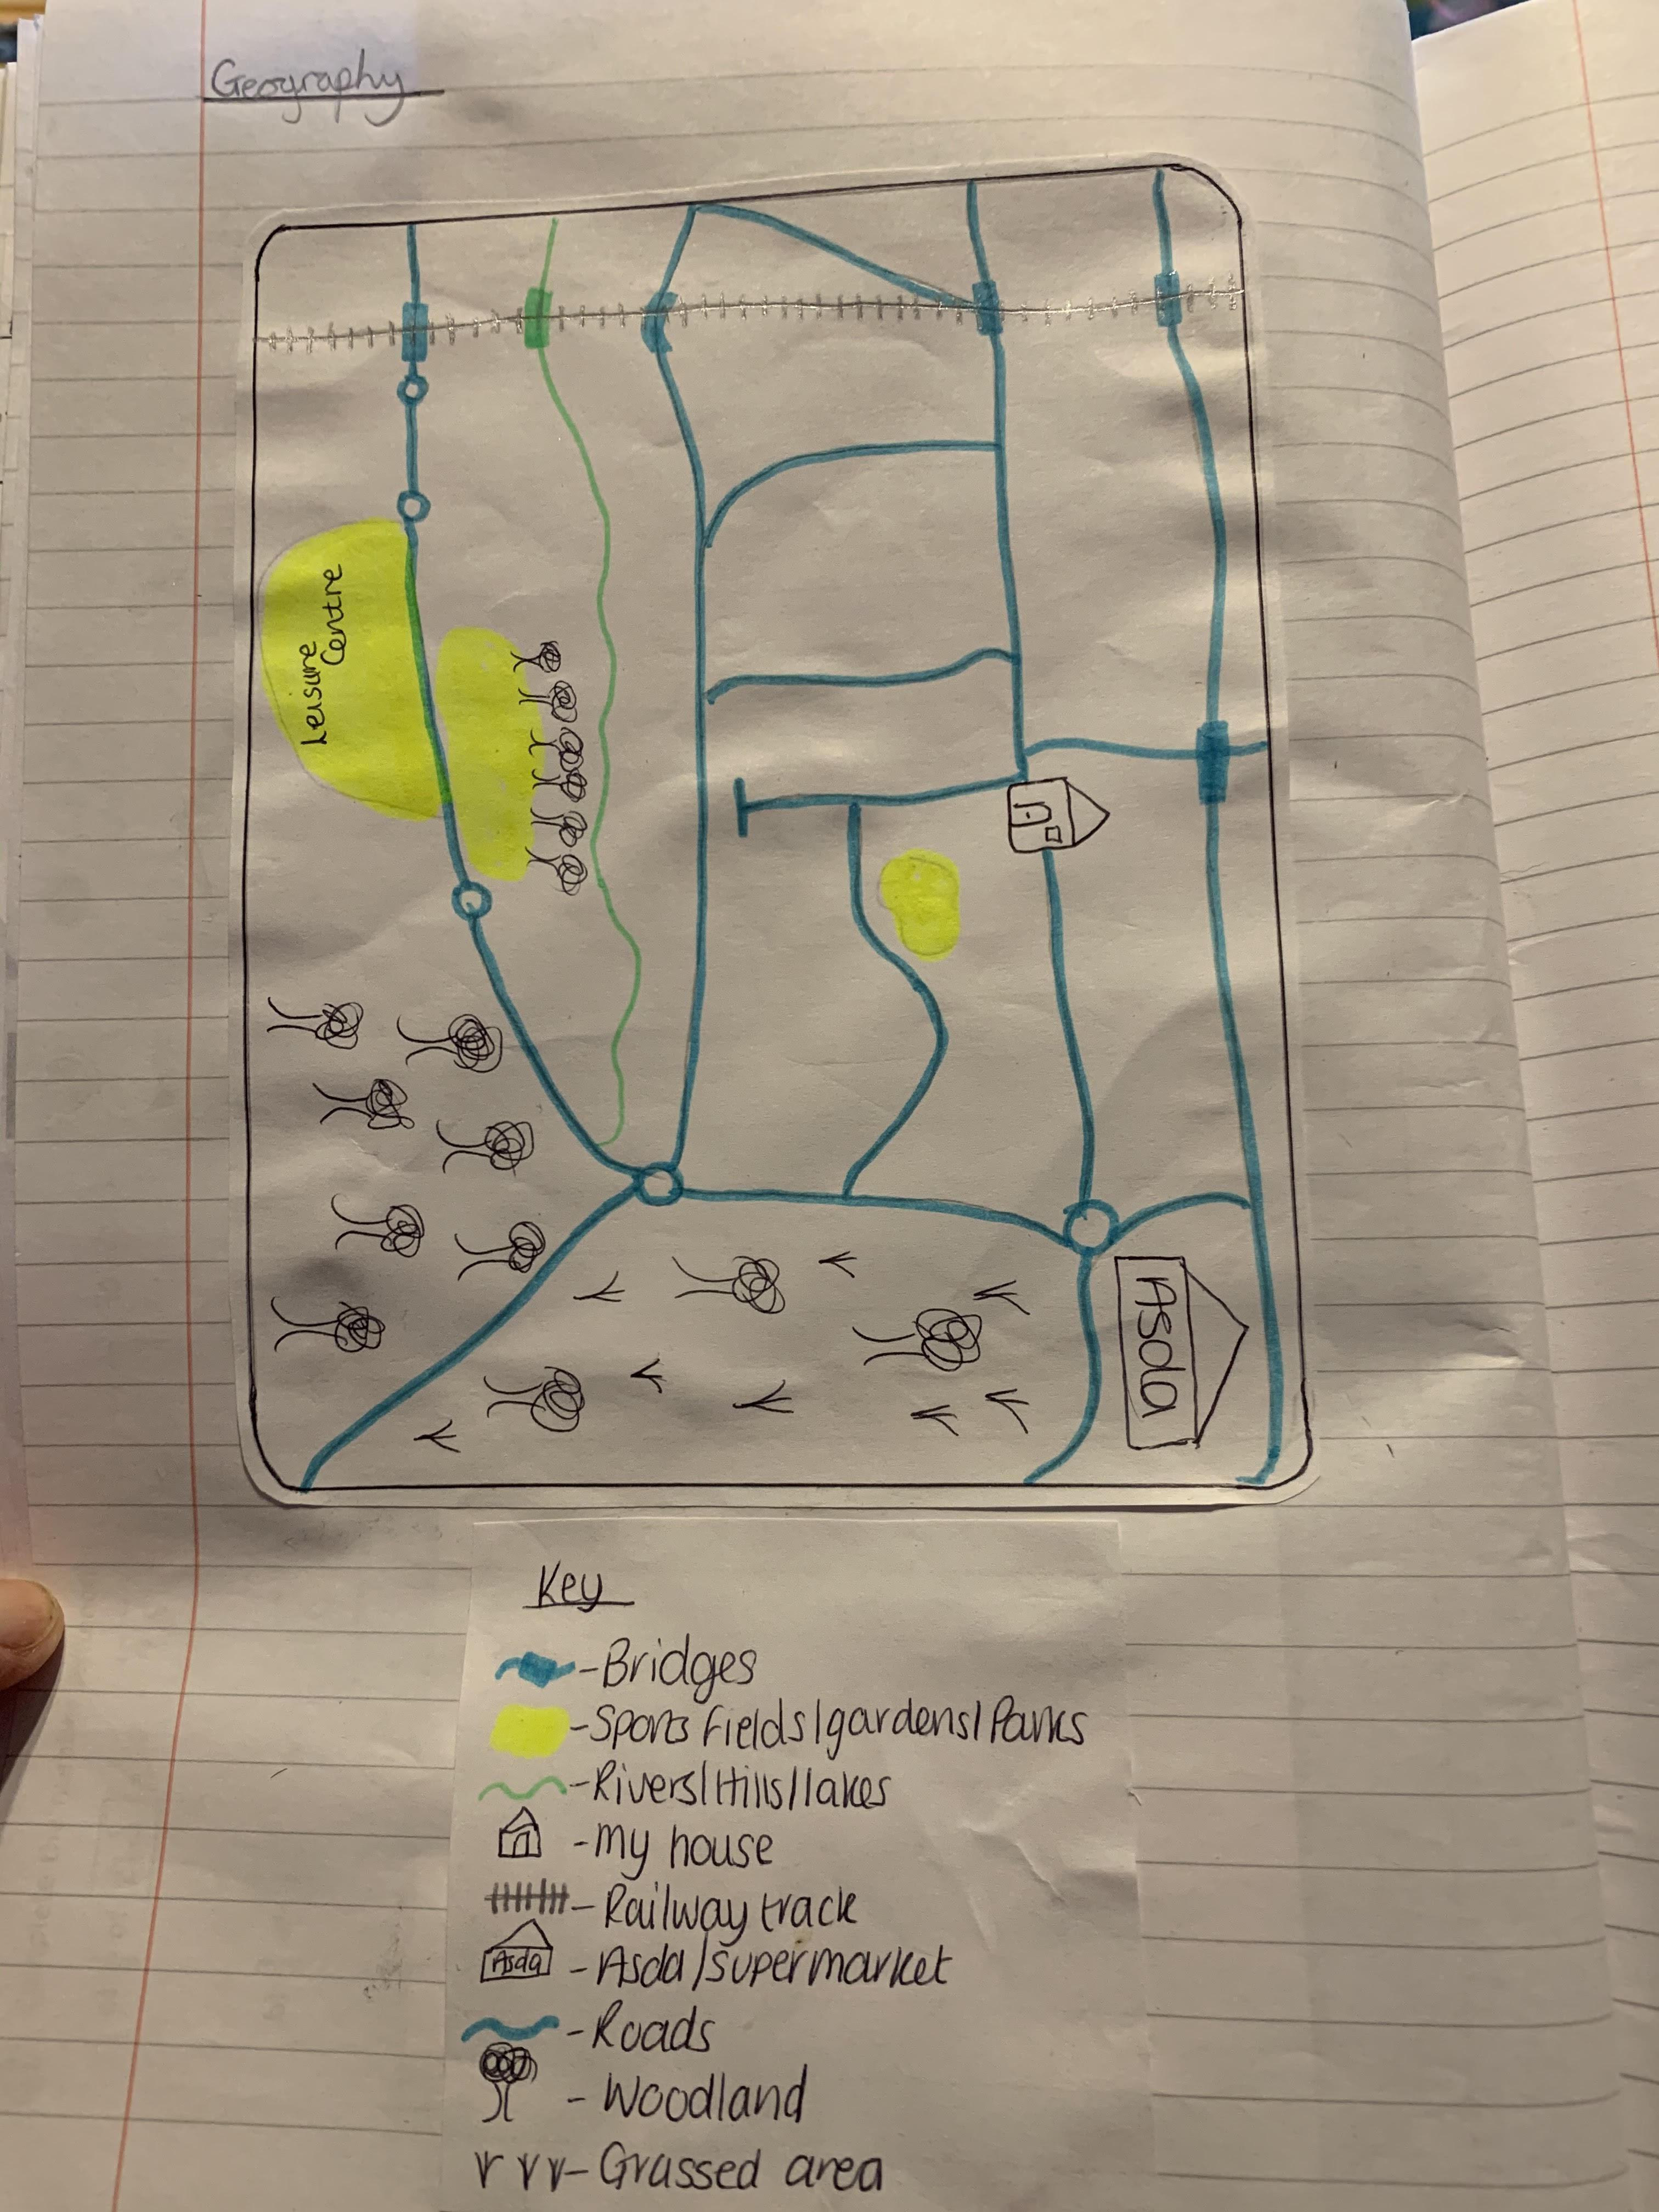 Geography
Leisure
Centre
Asda
Key
-Bridges
-Sports fields/gardens/Parks
-Rivers/Hills/lakes
-my house
-Railway track
Asda
-Asda/supermarket
-Roads
-Woodland
-Grassed area